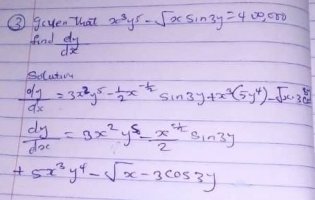 ③ given that x³y⁵ - √x sin3y = 400,000
find dy/dx
Solution
dy/dx = 3x²y⁵ - ½x^-½ sin3y + x³(5y⁴) - √x · 3
dy/dx = 3x²y⁵ - x^-½/2 sin3y
+ 5x³y⁴ - √x - 3cos3y